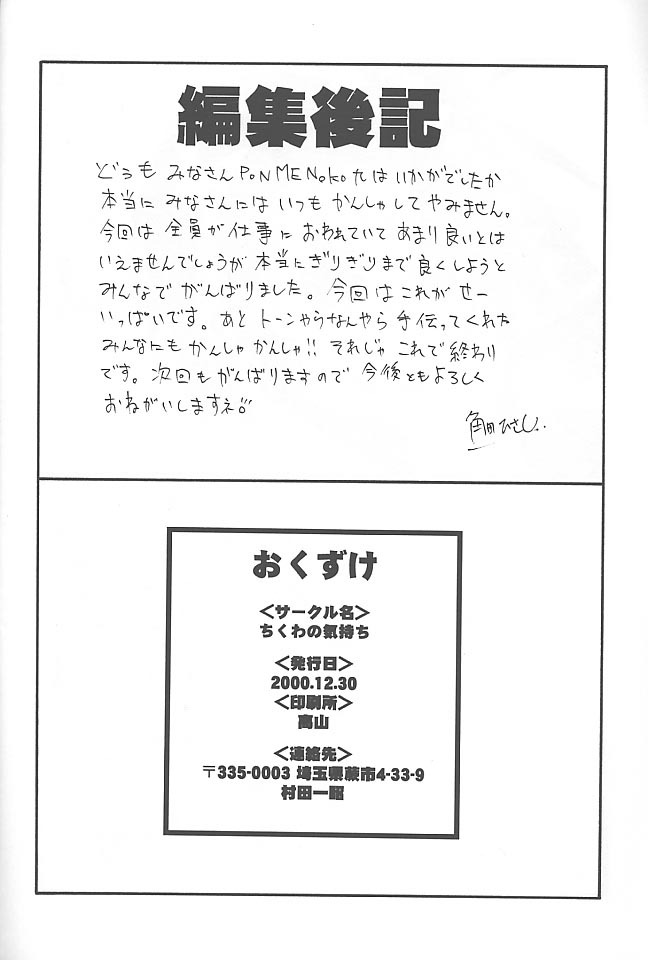 編集後記
どうも みなさん PoNMENoko九は いかがでしたか
本当に みなさんには いつも かんしゃしてやみません。
今回は 全員が 仕事に おわれていて あまり良いとは
いえませんでしょうが 本当にぎりぎりまで良くしようと
みんなで がんばりました。今回は これが せー
いっぱいです。あと トーンやらなんやら 手伝ってくれた
みんなにも かんしゃ かんしゃ!! それじゃ これで 終わり
です。次回も がんばりますので 今後ともよろしく
おねがいしますネ
角田ひさし..
おくずけ
<サークル名>
ちくわの気持ち
<発行日>
2000.12.30
<印刷所>
高山
<連絡先>
〒335-0003 埼玉県蕨市4-33-9
村田一昭